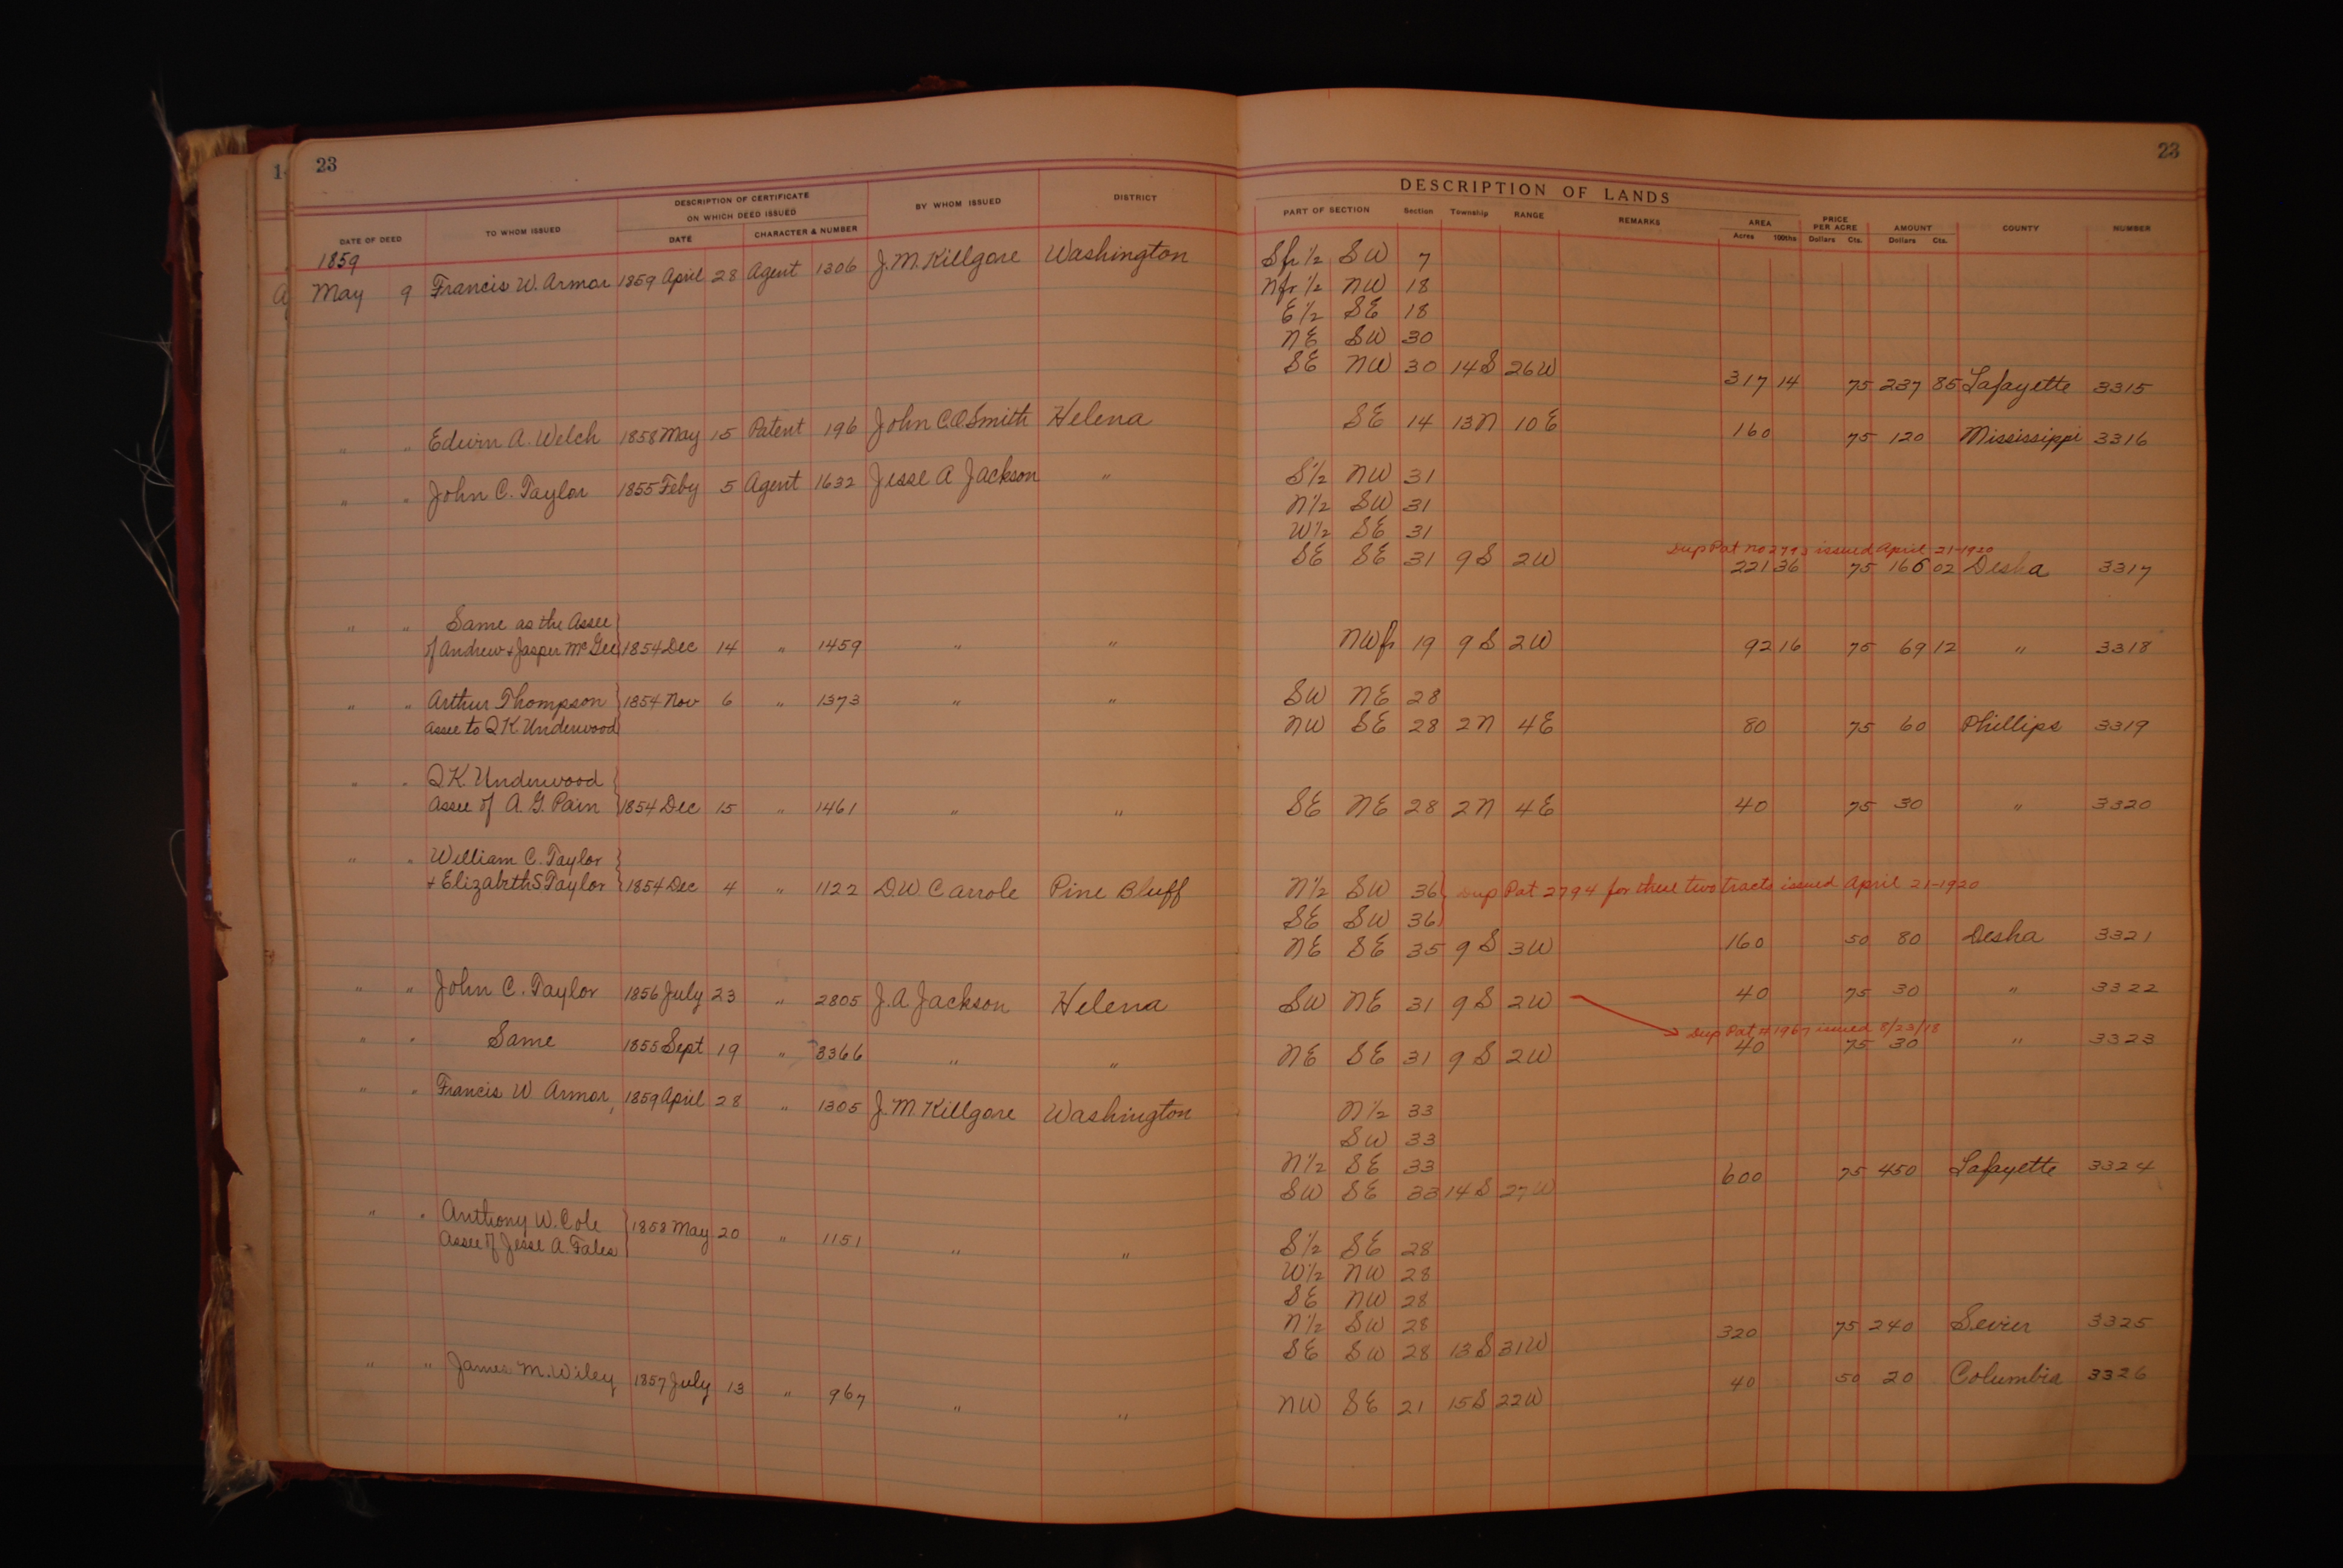 23
DATE OF DEED TO WHOM ISSUED DESCRIPTION OF CERTIFICATE ON WHICH DEED ISSUED DATE CHARACTER & NUMBER BY WHOM ISSUED DISTRICT
1859
May 9 Francis W. Armor 1859 April 28 Agent 1306 J. M. Killgore Washington
" " Edwin A. Welch 1858 May 15 Patent 196 John C.O. Smith Helena
" " John C. Taylor 1855 Feby 5 Agent 1632 Jesse A Jackson "
" " Same as the Assee
of Andrew & Jasper McGee 1854 Dec 14 " 1459 " "
" " Arthur Thompson 1854 Nov 6 " 1373 " "
Assee to Q K Underwood
" " Q K. Underwood
Assee of A. G. Pain 1854 Dec 15 " 1461 " "
" " William C. Taylor
& Elizabeth S Taylor 1854 Dec 4 " 1122 D. W. Carrole Pine Bluff
" " John C. Taylor 1856 July 23 " 2805 J. A Jackson Helena
" " Same 1855 Sept 19 " 3366 " "
" " Francis W Armor, 1859 April 28 " 1305 J. M. Killgore Washington
" " Anthony W. Cole 1858 May 20 " 1151 " "
Assee of Jesse A. Fales
" " James M. Wiley 1857 July 13 " 967 " "
23
DESCRIPTION OF LANDS
PART OF SECTION Section Township RANGE REMARKS AREA Acres 100ths PRICE PER ACRE Dollars Cts. AMOUNT Dollars Cts. COUNTY NUMBER
S fr 1/2 SW 7
N fr 1/2 NW 18
E 1/2 SE 18
NE SW 30
SE NW 30 14 S 26 W 317 14 75 237 85 Lafayette 3315
SE 14 13 N 10 E 160 75 120 Mississippi 3316
S 1/2 NW 31
N 1/2 SW 31
W 1/2 SE 31
Dup Pat no 2793 issued April 21-1920
SE SE 31 9 S 2 W 221 36 75 166 02 Desha 3317
NW fr 19 9 S 2 W 92 16 75 69 12 " 3318
SW NE 28
NW SE 28 2 N 4 E 80 75 60 Phillips 3319
SE NE 28 2 N 4 E 40 75 30 " 3320
N 1/2 SW 36 Dup Pat 2794 for these two tracts issued April 21-1920
SE SW 36
NE SE 35 9 S 3 W 160 50 80 Desha 3321
SW NE 31 9 S 2 W 40 75 30 " 3322
Dup Pat # 1967 issued 8/23/18
NE SE 31 9 S 2 W 40 75 30 " 3323
N 1/2 33
SW 33
N 1/2 SE 33
SW SE 33 14 S 27 W 600 75 450 Lafayette 3324
S 1/2 SE 28
W 1/2 NW 28
SE NW 28
N 1/2 SW 28
SE SW 28 13 S 31 W 320 75 240 Sevier 3325
NW SE 21 15 S 22 W 40 50 20 Columbia 3326